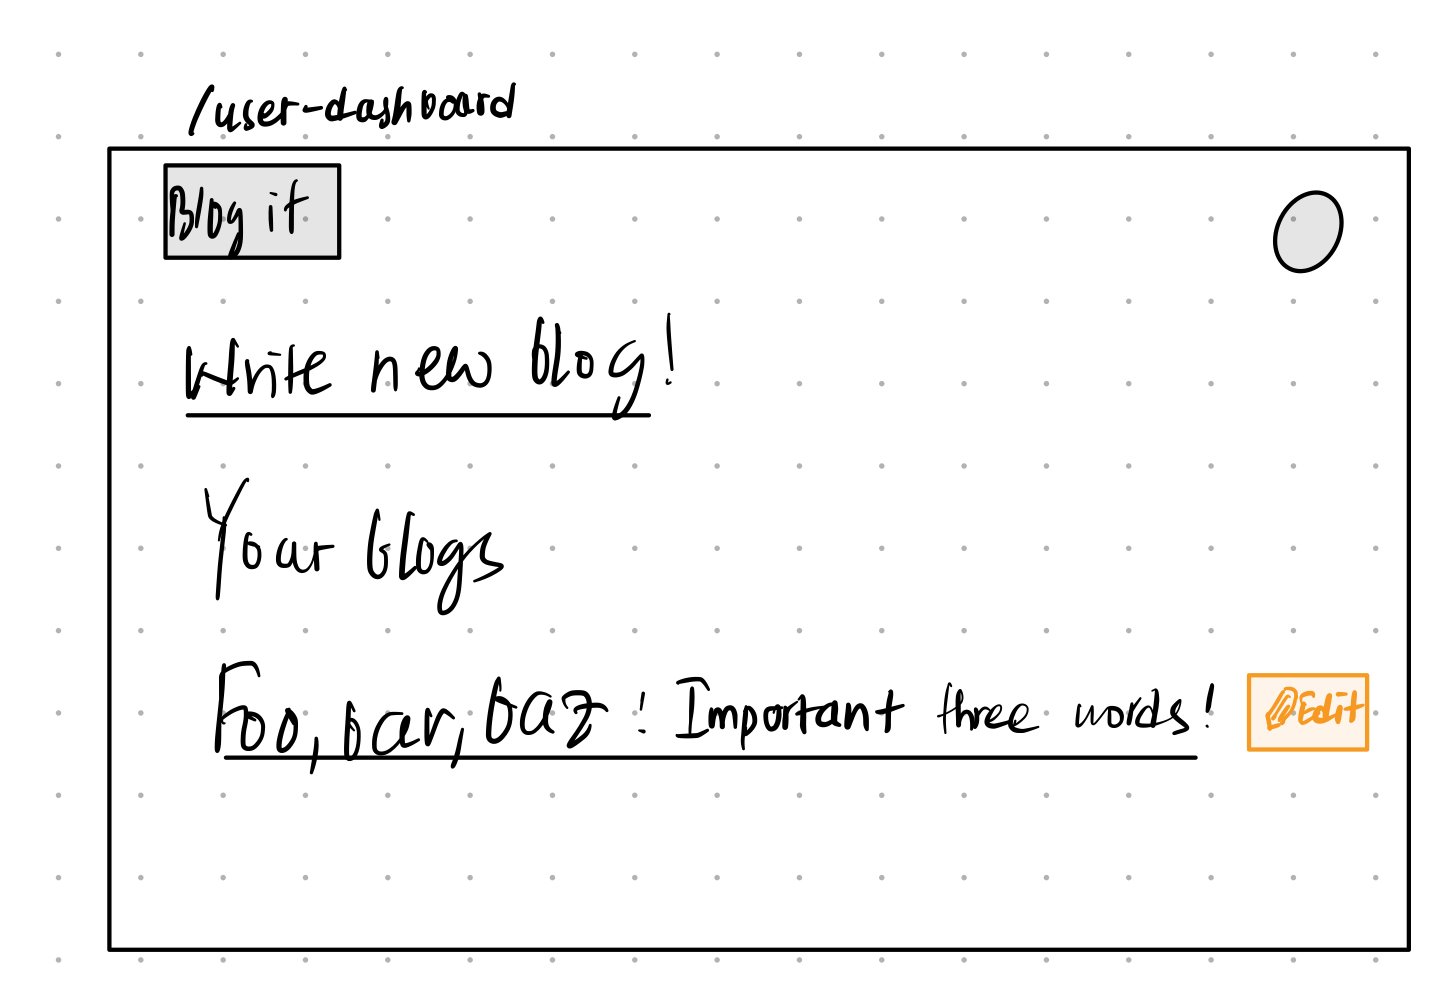 /user-dashboard
Blog it
Write new blog!
Your blogs
Foo, bar, baz: Important three words! Edit